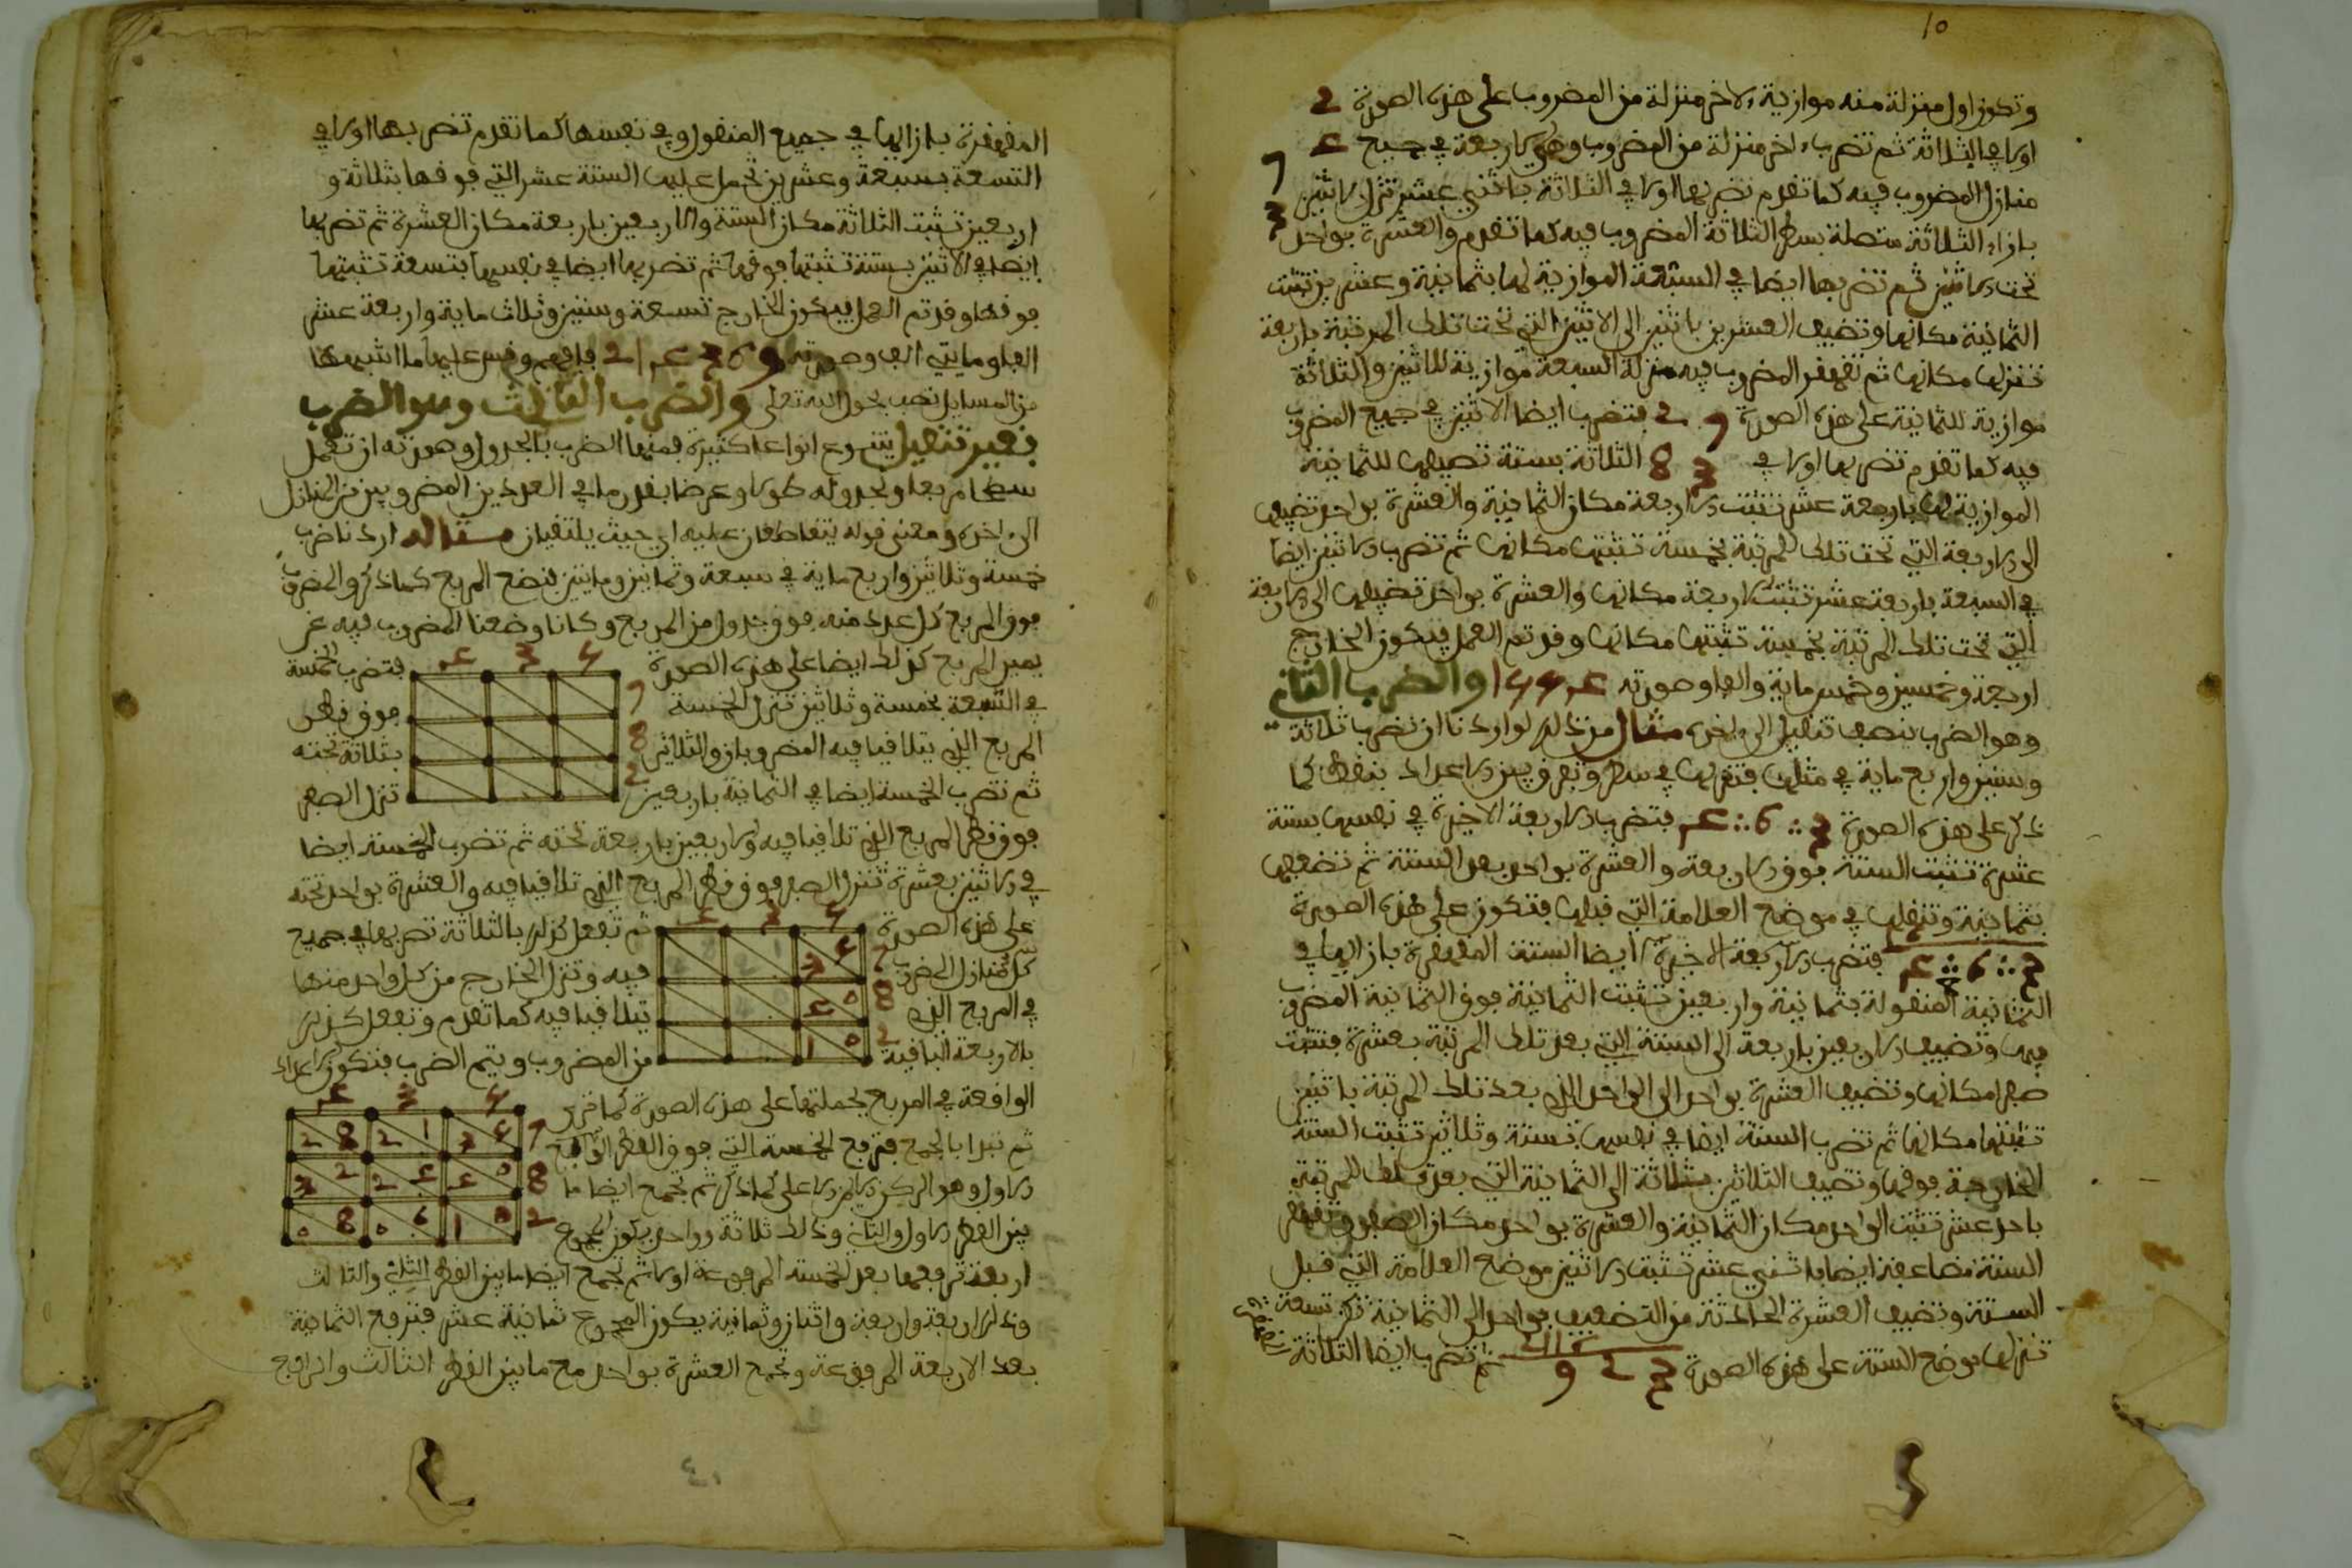 10
وتكون اول منزلة منه موازية ءلاخر منزلة من المضروب على هذه الصورة 2
اولا في الثلاثة ثم تضرب ءاخر منزلة من المضروب وهي الاربعة في جميع
منازل المضروب فيه كما تقدم تضربها اولا في الثلاثة باثني عشر تنزل الاثنين
بازاء الثلاثة متصلة بسطر الثلاثة المضروب فيه كما تقدم والعشرة بواحد
تحت الاثنين ثم تضربها ايضا في السبعة الموازية لها بثمانية وعشرين تثبت
الثمانية مكانها وتضيف العشرين باثنين الى الاثنين التي تحت تلك المرتبة باربعة
تنزلها مكانها ثم تقهقر المضروب فيه منزلة السبعة موازية للاثنين والثلاثة
موازية للثمانية على هذه الصورة 2 فتضرب ايضا الاثنين في جميع المضروب
فيه كما تقدم تضربها اولا في 3 8 الثلاثة بستة تضيفها للثمانية
الموازية لها باربعة عشر تثبت الاربعة مكان الثمانية والعشرة بواحد تضيفه
الى الاربعة التي تحت تلك المرتبة بخمسة تثبتها مكانها ثم تضرب الاثنين ايضا
في السبعة باربعة عشر تثبت الاربعة مكانها والعشرة بواحد تضيفها الى الاربعة
التي تحت تلك المرتبة بخمسة تثبتها مكانها وقد تم العمل فيكون الخارج
اربعة وخمسين وخمس ماية والفا وصورته والضرب الثاني
وهو الضرب بنصف تنقيل الى ءاخره مثال من ذلك لو اردنا ان نضرب ثلاثة
وستين واربع ماية في مثلها فتنزلها في سطر وتفرق بين الاعداد بنقط كما
ذكر على هذه الصورة 3 ∴ 6 ∴ 4 فتضرب الاربعة الاخيرة في نفسها بستة
عشرة تثبت الستة فوق الاربعة والعشرة بواحد بعد الستة ثم تضعفها
بثمانية وتنقلها في موضع العلامة التي قبلها فتكون على هذه الصورة
فتضرب الاربعة الاخيرة ايضا الستة المقهقرة بازايها في
الثمانية المنقولة بثمانية واربعين تثبت الثمانية فوق الثمانية المضروب
فيها وتضيف الاربعين باربعة الى الستة التي بعد تلك المرتبة بعشرة فتثبت
صفرا مكانها وتضيف العشرة بواحد الى الواحد الذي بعد تلك المرتبة باثنين
تثبتها مكانها ثم تضرب الستة ايضا في نفسها بستة وثلاثين تثبت الستة
الخارجة فوقها وتضيف الثلاثين بثلاثة الى الثمانية التي بعد تلك المرتبة
باحد عشر تثبت الواحد مكان الثمانية والعشرة بواحد مكان الصفر وتقهقر
الستة مضاعفة ايضا باثني عشر تثبت الاثنين موضع العلامة التي قبل
الستة وتضيف العشرة الحادثة من التضعيف بواحد الى الثمانية تكن تسعة
تنزلها موضع الستة على هذه الصورة 3 2 9 ثم تضرب ايضا الثلاثة
المقهقرة بازايها في جميع المنقول وفي نفسها كما تقدم تضربها اولا في
التسعة بسبعة وعشرين تحمل عليها الستة عشر التي فوقها بثلاثة و
اربعين تثبت الثلاثة مكان الستة والاربعين باربعة مكان العشرة ثم تضربها
ايضا في الاثنين بستة تثبتها فوقها ثم تضربها ايضا في نفسها بتسعة تثبتها
فوقها وقد تم العمل فيكون الخارج تسعة وستين وثلاث ماية واربعة عشر
الفا ومايتي الف وصورته فافهم وقس عليها ما اشبهها
من المسايل تصب بحول الله تعلى والضرب الثالث وهو الضرب
بغير تنقيل يتنوع انواعا كثيرة فمنها الضرب بالجدول وصورته ان تعمل
سطحا مربعا وتجدوله طولا وعرضا بقدر ما في العددين المضروبين من المنازل
الى ءاخره ومعنى قوله يتقاطعان عليه اي حيث يلتقيان مثاله اردنا ضرب
خمسة وثلاثين واربع ماية في سبعة وثمانين ومايتين فنضع المربع كما ذكر والمضروب
فوق المربع كل عدد منه فوق جدول من المربع وكانا وضعنا المضروب فيه عن
يمين المربع كذلك ايضا على هذه الصورة فتضرب الخمسة
في السبعة بخمسة وثلاثين تنزل الخمسة فوق قطر
المربع الذي يتلاقيا فيه المضروبان والثلاثين بثلاثة تحته
ثم تضرب الخمسة ايضا في الثمانية باربعين تنزل الصفر
فوق قطر المربع الذي تلاقيا فيه والاربعين باربعة تحته ثم تضرب الخمسة ايضا
في الاثنين بعشرة تنزل الصفر فوق قطر المربع الذي تلاقيا فيه والعشرة بواحد تحته
على هذه الصورة ثم تفعل كذلك بالثلاثة تضربها في جميع
كل منازل المضروب فيه وتنزل الخارج من كل واحد منها
في المربع الذي تلاقيا فيه كما تقدم وتفعل كذلك
بالاربعة الباقية من المضروب ويتم الضرب فتكون الاعداد
الواقعة في المربع بجملتها على هذه الصورة كما ترى
ثم تبدا بالجمع فترفع الخمسة التي فوق القطر الواقع
الاول وهو الركن الايمن الاعلى كما ذكر ثم تجمع ايضا ما
بين القطر الاول والثاني وذلك ثلاثة وواحد يكون المجموع
اربعة ترفعها بعد الخمسة المرفوعة اولا ثم تجمع ايضا ما بين القطر الثاني والثالث
وذلك اربعة واربعة واثنان وثمانية يكون المجموع ثمانية عشر فترفع الثمانية
بعد الاربعة المرفوعة وتجمع العشرة بواحد مع ما بين القطر الثالث والرابع